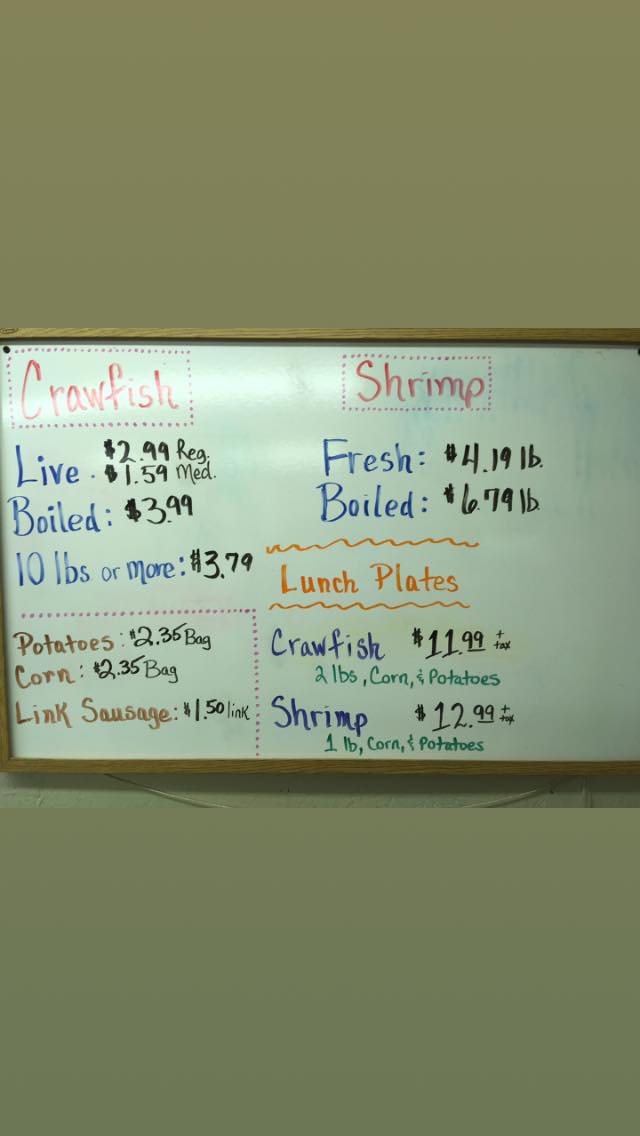 Crawfish
Live. $2.99 Reg.
$1.59 Med.
Boiled: $3.99
10 lbs or more: $3.79
Potatoes: $2.35 Bag
Corn: $2.35 Bag
Link Sausage: $1.50 link
Shrimp
Fresh: $4.19 lb.
Boiled: $6.79 lb.
Lunch Plates
Crawfish $11.99 + tax
2 lbs, Corn, & Potatoes
Shrimp $12.99 + tax
1 lb, Corn, & Potatoes